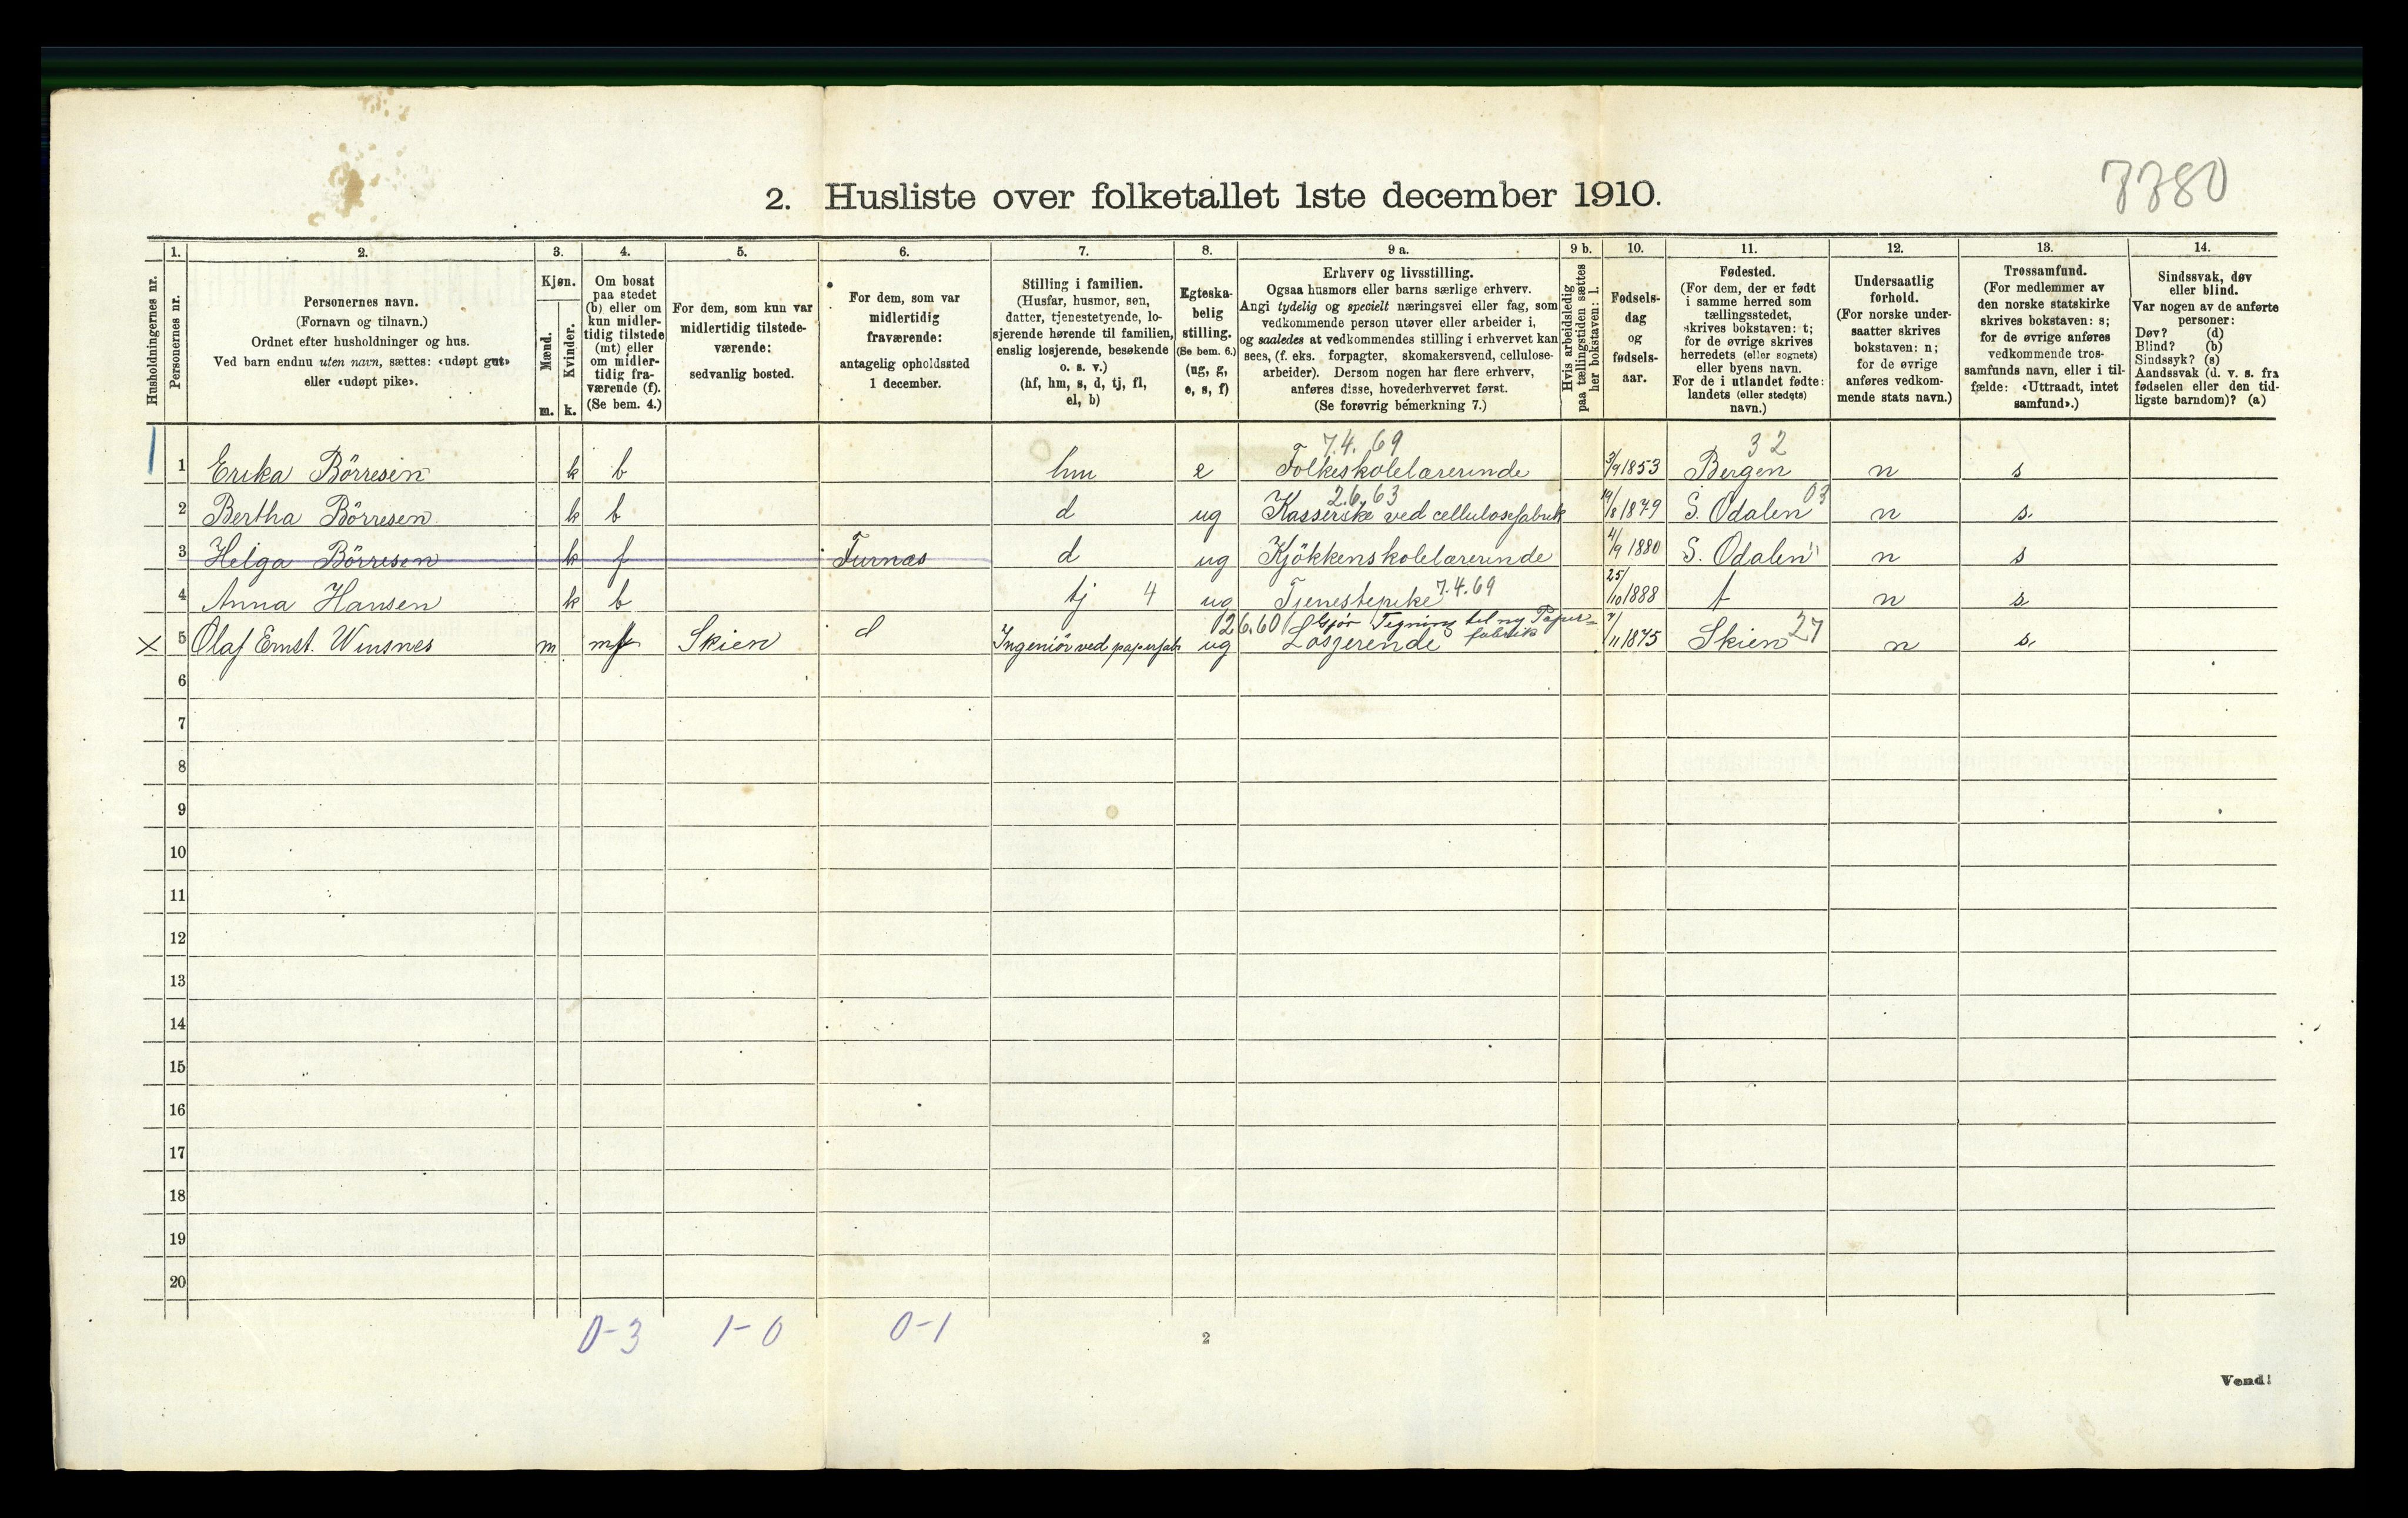 7780
2. Husliste over folketallet 1ste december 1910.
1. 2. 3. 4. 5. 6. 7. 8. 9 a. 9 b. 10. 11. 12. 13. 14.
Husholdningernes nr.
Personernes nr.
Personernes navn.
(Fornavn og tilnavn.)
Ordnet efter husholdninger og hus.
Ved barn endnu uten navn, sættes: «udøpt gut»
eller «udøpt pike».
Kjøn.
Mænd.
Kvinder.
m. k.
Om bosat
paa stedet
(b) eller om
kun midler-
tidig tilstede
(mt) eller
om midler-
tidig fra-
værende (f).
(Se bem. 4.)
For dem, som kun var
midlertidig tilstede-
værende:
sedvanlig bosted.
For dem, som var
midlertidig
fraværende:
antagelig opholdssted
1 december.
Stilling i familien.
(Husfar, husmor, søn,
datter, tjenestetyende, lo-
sjerende hørende til familien,
enslig losjerende, besøkende
o. s. v.)
(hf, hm, s, d, tj, fl,
el, b)
Egteska-
belig
stilling.
(Se bem. 6.)
(ug, g,
e, s, f)
Erhverv og livsstilling.
Ogsaa husmors eller barns særlige erhverv.
Angi tydelig og specielt næringsvei eller fag, som
vedkommende person utøver eller arbeider i,
og saaledes at vedkommendes stilling i erhvervet kan
sees, (f. eks. forpagter, skomakersvend, cellulose-
arbeider). Dersom nogen har flere erhverv,
anføres disse, hovederhvervet først.
(Se forøvrig bemerkning 7.)
Hvis arbeidsledig
paa tællingstiden sættes
her bokstaven: l.
Fødsels-
dag
og
fødsels-
aar.
Fødested.
(For dem, der er født
i samme herred som
tællingsstedet,
skrives bokstaven: t;
for de øvrige skrives
herredets (eller sognets)
eller byens navn.
For de i utlandet fødte:
landets (eller stedets)
navn.)
Undersaatlig
forhold.
(For norske under-
saatter skrives
bokstaven: n;
for de øvrige
anføres vedkom-
mende stats navn.)
Trossamfund.
(For medlemmer av
den norske statskirke
skrives bokstaven: s;
for de øvrige anføres
vedkommende tros-
samfunds navn, eller i til-
fælde: «Uttraadt, intet
samfund».)
Sindssvak, døv
eller blind.
Var nogen av de anførte
personer:
Døv? (d)
Blind? (b)
Sindssyk? (s)
Aandssvak (d. v. s. fra
fødselen eller den tid-
ligste barndom)? (a)
7.4.69 32
1 1 Erika Börresen k b hm e Folkeskolelærerinde 3/9 1853 Bergen n s
2.6.63 03
2 Bertha Börresen k b d ug Kasserske ved cellulosefabrik 19/8 1879 S. Odalen n s.
3 Helga Börresen k f Furnæs d ug Kjökkenskolelærerinde 4/9 1880 S. Odalen n s
4 Anna Hansen k b tj 4 ug Tjenestepike 7.4.69 25/10 1888 t n s
26.60 Gjør Tegning til ny Papir=
fabrik
× 5 Olaf Ernst. Winsnes m mt Skien Ingeniör ved papirfab ug Losjerende 7/11 1875 Skien 27 n s.
6
7
8
9
10
11
12
13
14
15
16
17
18
19
20
0-3 1-0 0-1
2
Vend!